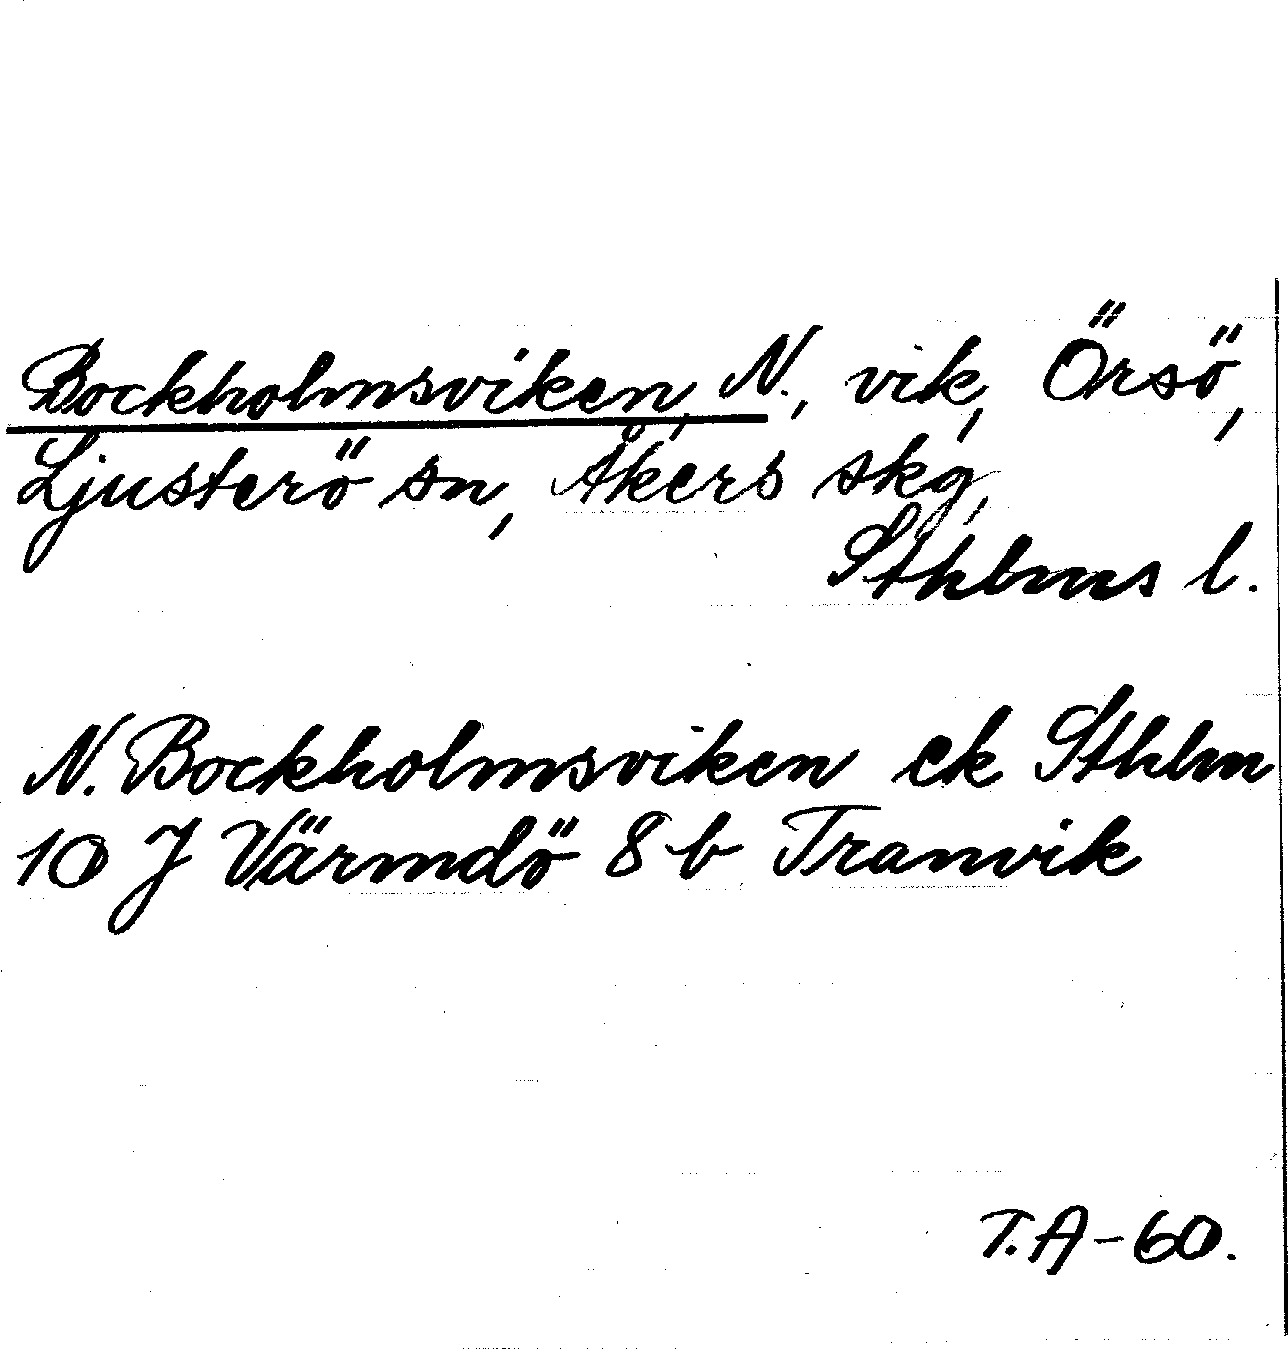 Bockholmsviken, N., vik, Örsö,
Ljusterö sn, Åkers skg,
Sthlms l.
N. Bockholmsviken ek Sthlm
10 J Värmdö 8 b Tranvik
T.A-60.